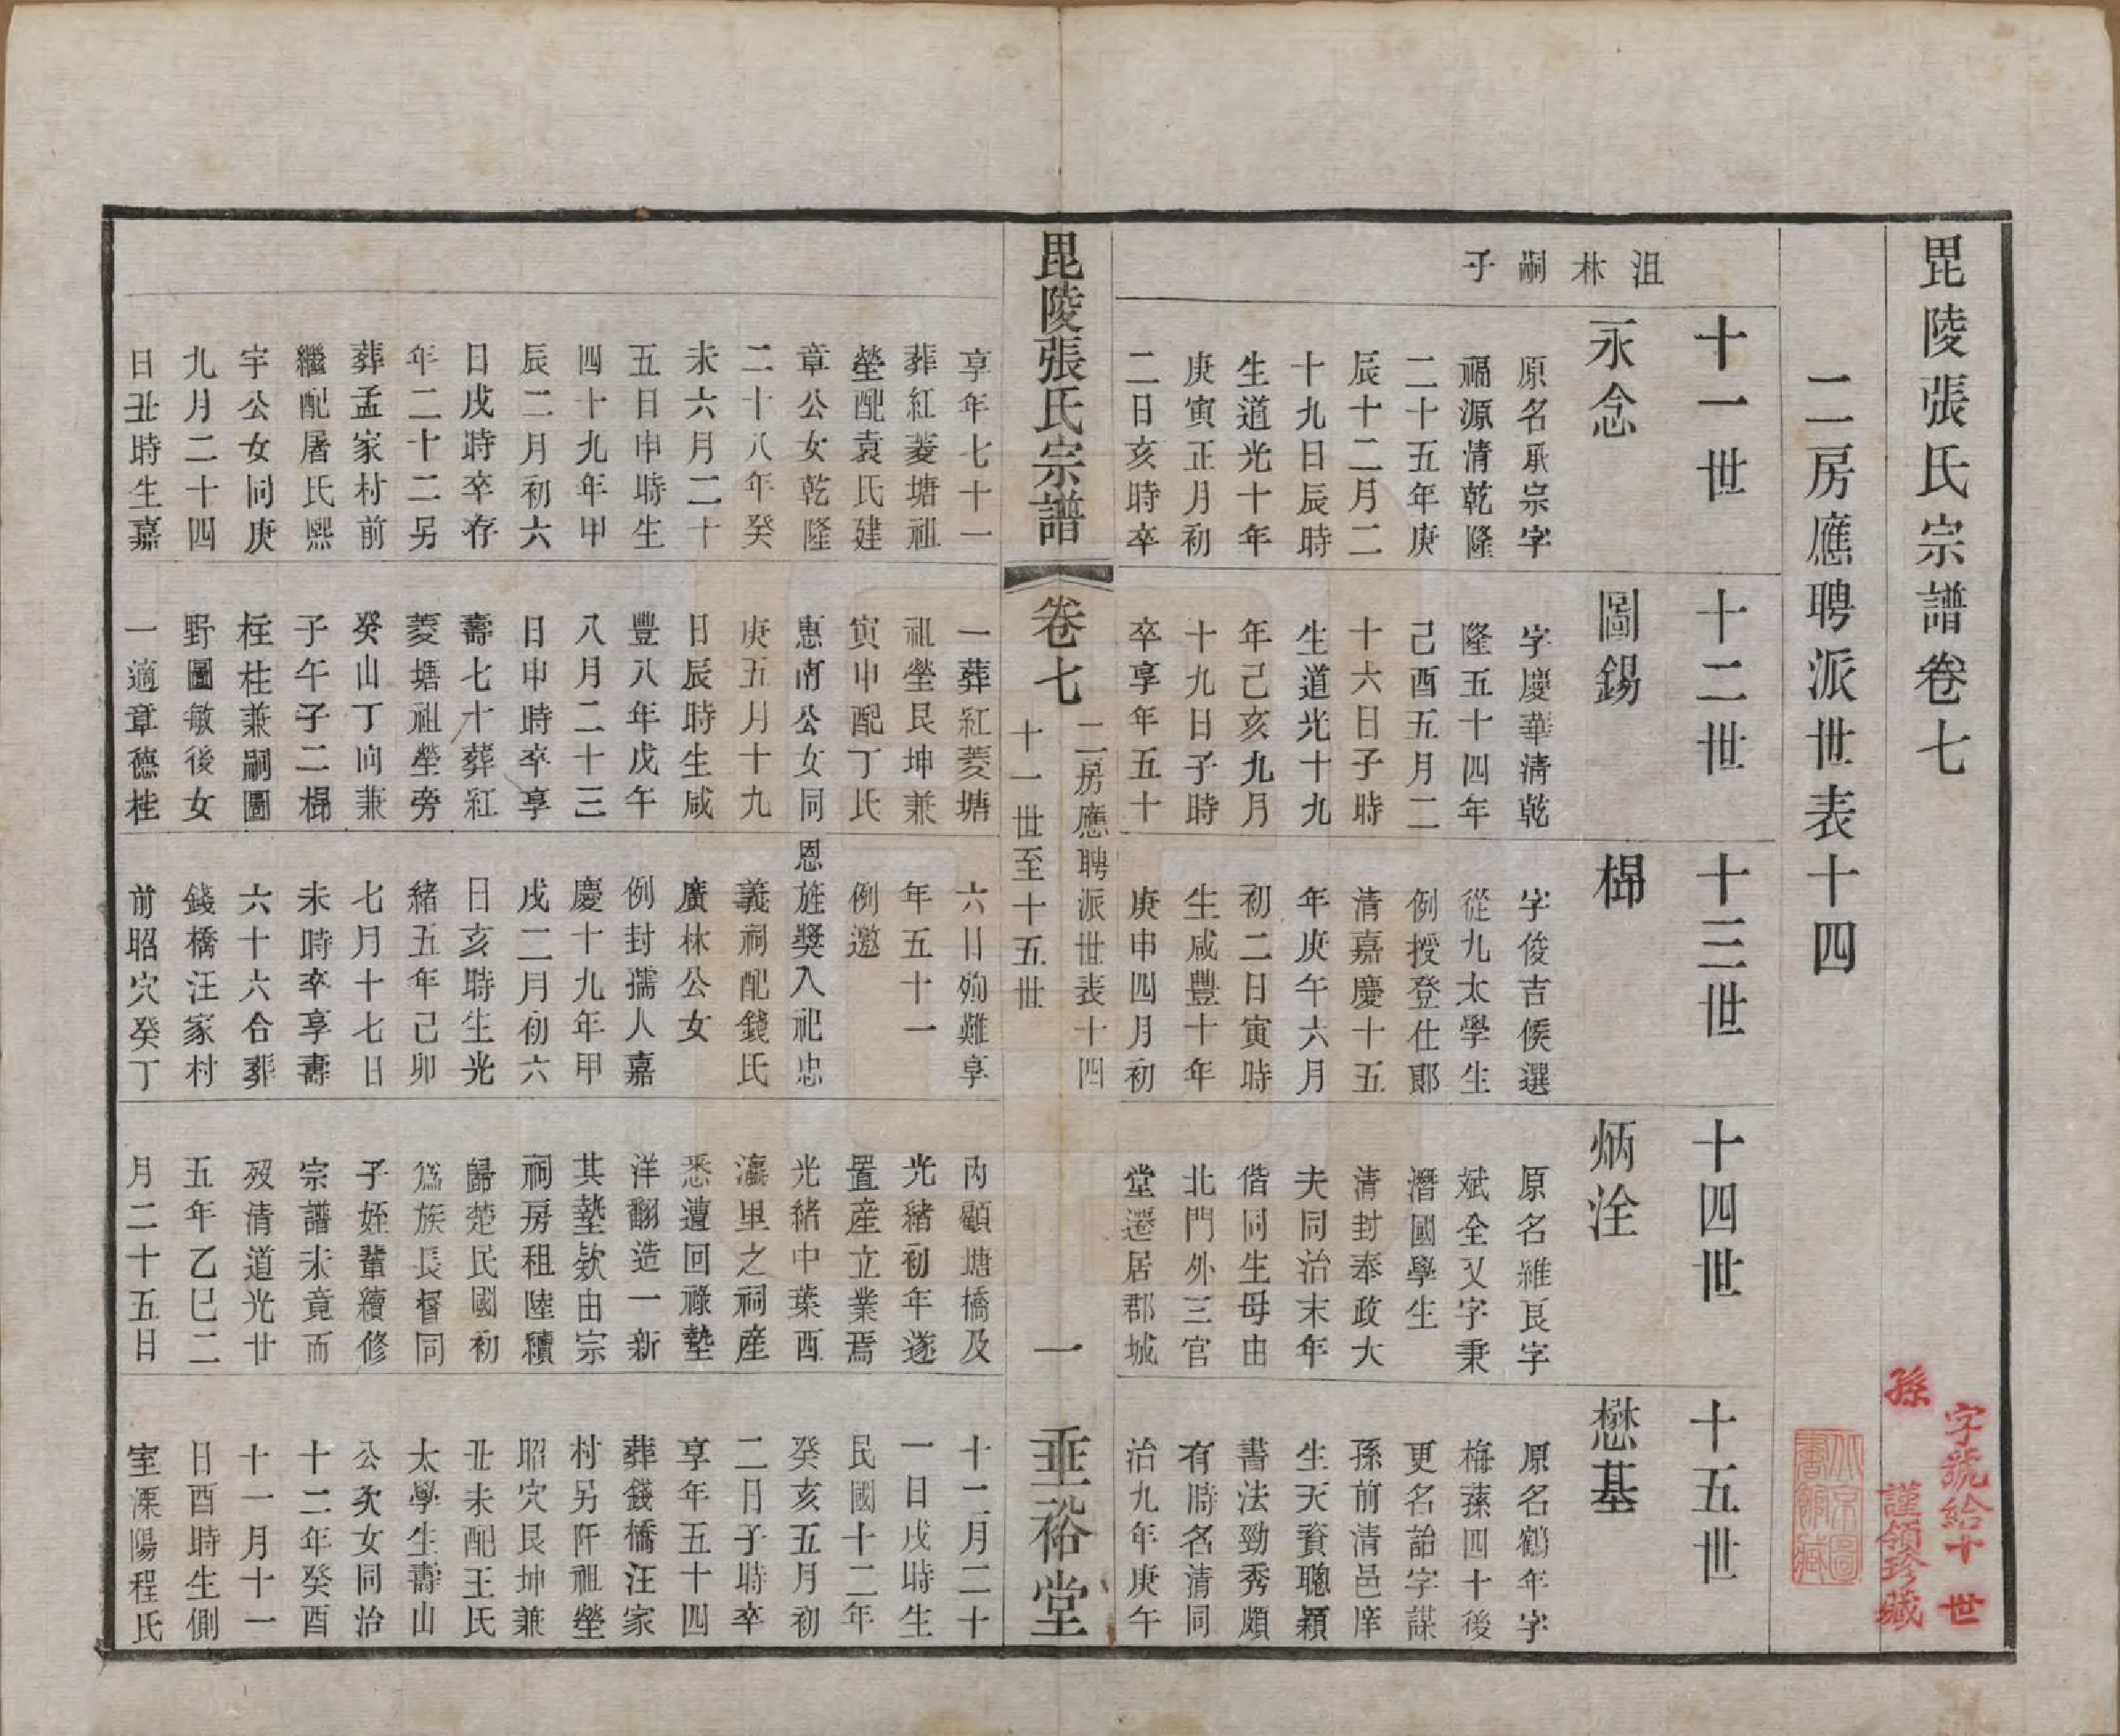 毘陵張氏宗譜卷七
二房應聘派世表十四
沮林嗣子
十一世
永念
原名承宗字
福源清乾隆
二十五年庚
辰十二月二
十九日辰時
生道光十年
庚寅正月初
二日亥時卒
十二世
圖錫
字慶華清乾
隆五十四年
己酉五月二
十六日子時
生道光十九
年己亥九月
十九日子時
卒享年五十
十三世
楊
字俊吉候選
從九太學生
例授登仕郎
清嘉慶十五
年庚午六月
初二日寅時
生咸豐十年
庚申四月初
十四世
炳洤
原名維艮字
斌全又字秉
濳國學生
清封奉政大
夫同治末年
偕同生母由
北門外三官
堂遷居郡城
十五世
懋基
原名鶴年字
梅蓀四十後
更名詒字謀
孫前清邑庠
生天資聰穎
書法勁秀頗
有時名清同
治九年庚午
孫 字號給十 世
謹領珍藏
毘陵張氏宗譜
卷七
二房應聘派世表十四
十一世至十五世
一
垂裕堂
享年七十一
葬紅菱塘祖
塋配袁氏建
章公女乾隆
二十八年癸
未六月二十
五日申時生
四十九年甲
辰二月初六
日戌時卒存
年二十二另
葬孟家村前
繼配屠氏熙
宇公女同庚
九月二十四
日丑時生嘉
一葬紅菱塘
祖塋艮坤兼
寅申配丁氏
惠南公女同
庚五月十九
日辰時生咸
豐八年戊午
八月二十三
日申時卒享
壽七十葬紅
菱塘祖塋旁
癸山丁向兼
子午子二楊
枉柱兼嗣圖
野圖敏後女
一適章德桂
六日殉難享
年五十一
例邀
恩旌獎入祀忠
義祠配錢氏
廣林公女
例封孺人嘉
慶十九年甲
戌二月初六
日亥時生光
緒五年己卯
七月十七日
未時卒享壽
六十六合葬
錢橋汪家村
前昭穴癸丁
內顧塘橋及
光緒初年遂
置產立業焉
光緒中葉西
瀛里之祠產
悉遭回祿墊
洋翻造一新
其墊欵由宗
祠房租陸續
歸楚民國初
爲族長督同
子姪輩續修
宗譜未竟而
歿清道光廿
五年乙巳二
月二十五日
十二月二十
一日戌時生
民國十二年
癸亥五月初
二日子時卒
享年五十四
葬錢橋汪家
村另阡祖塋
昭穴艮坤兼
丑未配王氏
太學生壽山
公次女同治
十二年癸酉
十一月十一
日酉時生側
室溧陽程氏